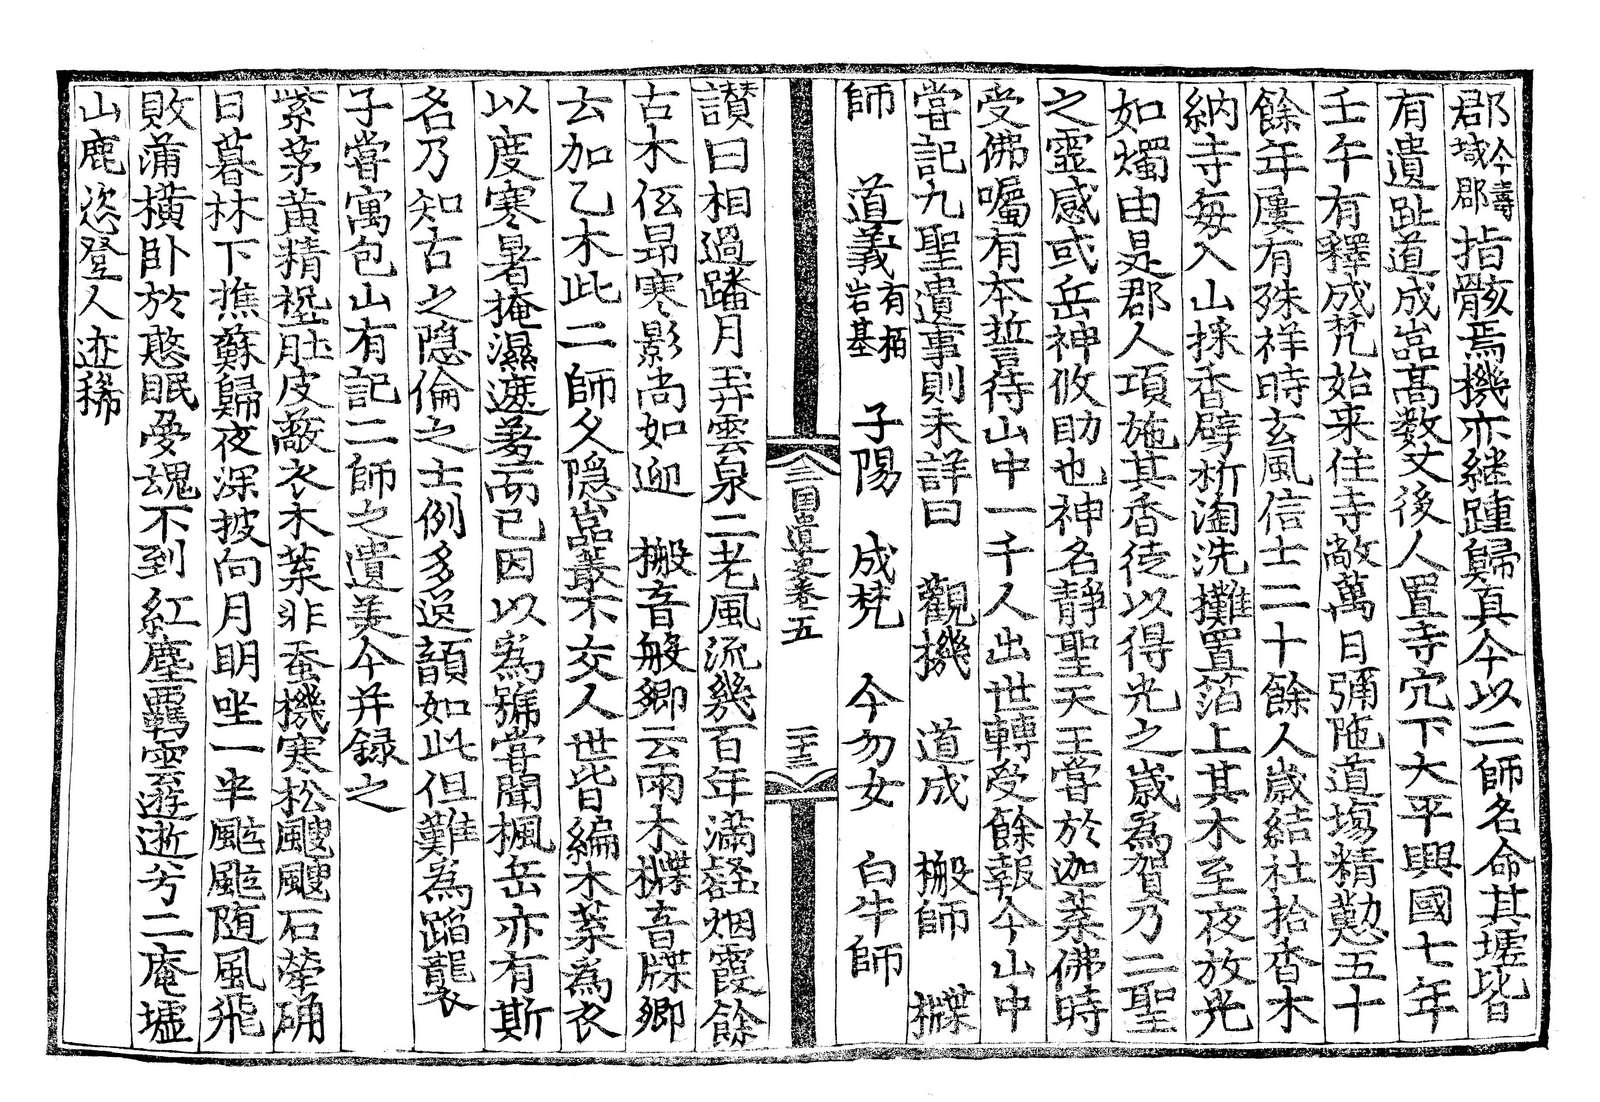 郡今壽域郡指骸焉機亦継踵歸真今以二師名命其墟皆
有遺趾道成嵓髙數丈後人置寺穴下大平興國七年
壬午有釋成梵始来住寺敞萬日彌陁道場精懃五十
餘年屢有殊祥時玄風信士二十餘人歳結社拾香木
納寺每入山採香劈析淘洗攤置箔上其木至夜放光
如燭由是郡人項施其香徒以得光之歳為賀乃二聖
之霊感或岳神攸助也神名靜聖天王嘗於迦葉佛時
受佛囑有夲誓待山中一千人出世轉受餘報今山中
嘗記九聖遺事則未詳曰 觀機 道成 㮽師 㯹
師 道義有栢岩基 子陽 成梵 今勿女 白牛師
三國遺事卷五 二十三
讃曰相過蹯月弄雲泉二老風流幾百年滿壑烟霞餘
古木伭昂寒影尚如迎 㮽音般郷云雨木㯹音牒郷
云加乙木此二師久隐嵓叢不交人世皆編木葉為衣
以度寒暑掩濕遮羞而已因以為號嘗聞楓岳亦有斯
名乃知古之隐倫之士例多逸韻如此但難為蹈襲
予嘗寓包山有記二師之遺美今并録之
紫茅黄精𡎺肚皮蔽衣木葉非蚕機寒松颼颼石犖确
日暮林下擔蘇歸夜深披向月明坐一半颯颯随風飛
敗蒲横卧於憨眠夢魂不到紅塵羈雲遊逝兮二庵墟
山鹿恣登人迹稀